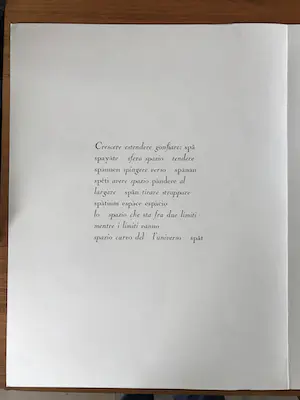 Crescere estendere gonfiare: spà
spayáte sfera spazio tendere
spannen spingere verso spànan
spēti avere spazio pandere al
largare spáo tirare strappare
spatium espace espacio
lo spazio che sta fra due limiti
mentre i limiti vanno
spazio curvo del l'universo spàt